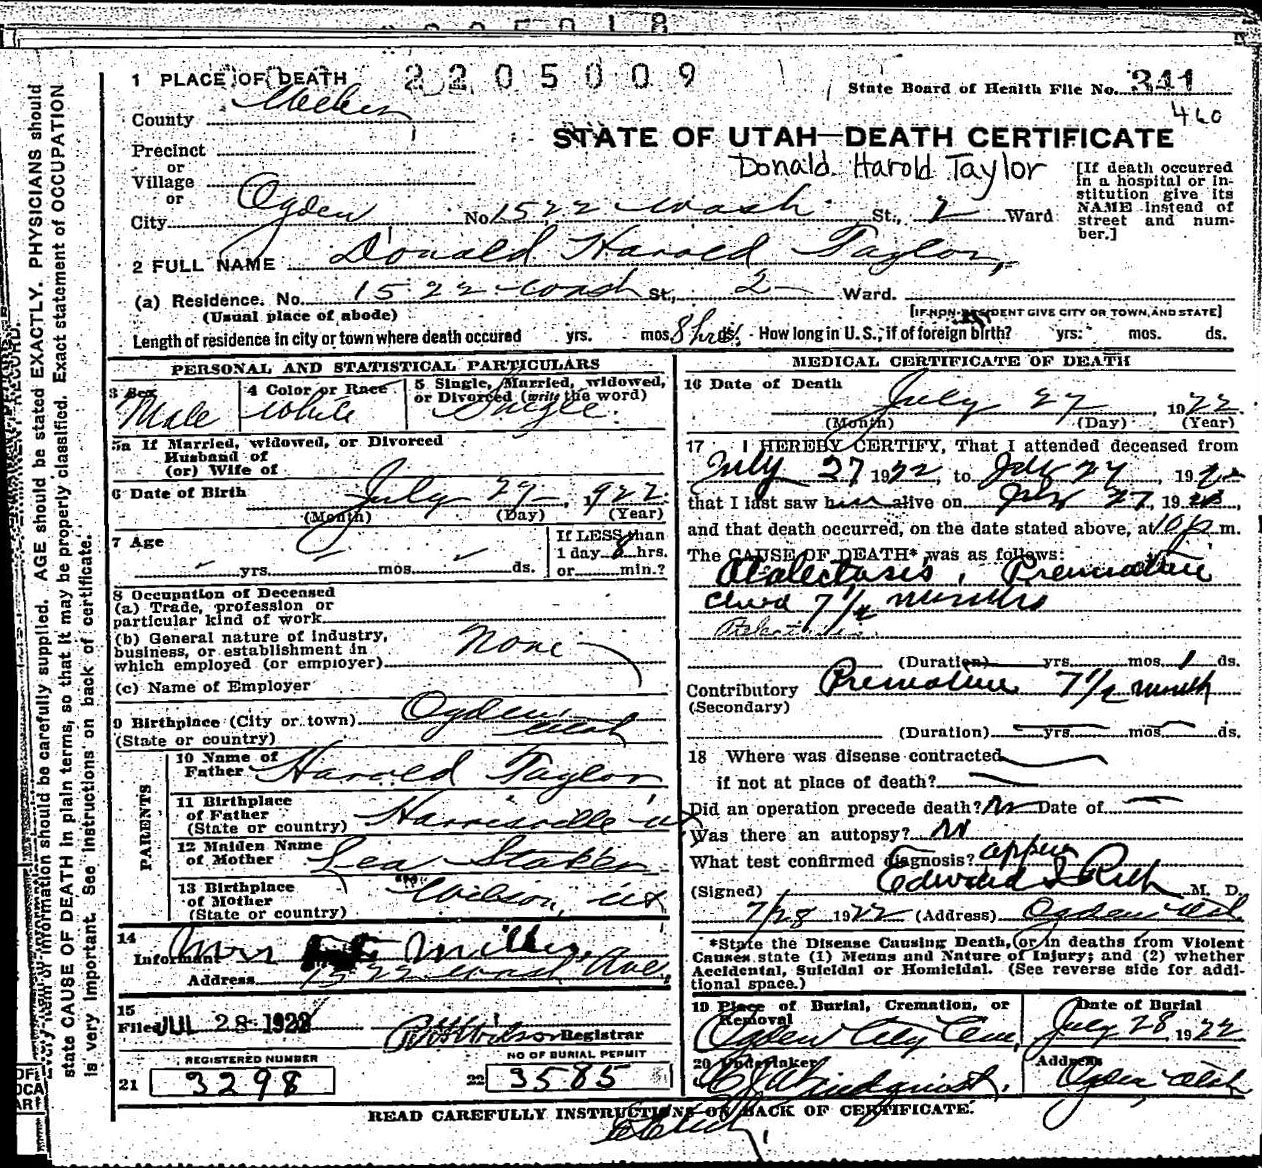 2205009
1 PLACE OF DEATH
State Board of Health File No. 341
460
County Weber
STATE OF UTAH—DEATH CERTIFICATE
Precinct
or
Village
or
Donald Harold Taylor
[If death occurred in a hospital or institution give its NAME instead of street and number.]
City Ogden No. 1522 Wash. St., 2 Ward
2 FULL NAME Donald Harold Taylor,
(a) Residence. No. 1522 Wash St., 2 Ward.
(Usual place of abode)
[IF NON-RESIDENT GIVE CITY OR TOWN, AND STATE]
Length of residence in city or town where death occured yrs. mos. 8 hrs. ds. How long in U. S., if of foreign birth? yrs. mos. ds.
PERSONAL AND STATISTICAL PARTICULARS
3 Sex Male
4 Color or Race White
5 Single, Married, widowed, or Divorced (write the word) Single.
5a If Married, widowed, or Divorced
Husband of
(or) Wife of
6 Date of Birth July 27 1922
(Month) (Day) (Year)
7 Age yrs. mos. ds.
If LESS than
1 day 8 hrs.
or min.?
8 Occupation of Deceased
(a) Trade, profession or
particular kind of work
(b) General nature of industry,
business, or establishment in
which employed (or employer) None
(c) Name of Employer
9 Birthplace (City or town) Ogden
(State or country) Utah
PARENTS
10 Name of
Father Harold Taylor
11 Birthplace
of Father
(State or country) Harrisville Ut
12 Maiden Name
of Mother Lea
13 Birthplace
of Mother
(State or country) Wilson, Ut
14
Informant Mrs Miller
Address 1522 Wash Ave,
15
Filed JUL 28 1922
Registrar
REGISTERED NUMBER
21 3298
NO OF BURIAL PERMIT
22 3585
MEDICAL CERTIFICATE OF DEATH
16 Date of Death July 27, 1922
(Month) (Day) (Year)
17 I HEREBY CERTIFY, That I attended deceased from
July 27 1922, to July 27, 192
that I last saw him alive on July 27, 1922
and that death occurred, on the date stated above, at 10 p m.
The CAUSE OF DEATH* was as follows:
Atalectasis, Premature
child 7 1/2 months
(Duration) yrs. mos. 1 ds.
Contributory Premature 7 1/2 month
(Secondary)
(Duration) yrs. mos. ds.
18 Where was disease contracted
if not at place of death?
Did an operation precede death? no Date of
Was there an autopsy? no
What test confirmed diagnosis?
(Signed) Edward I Rich M. D.
7/28 1922 (Address) Ogden Utah
*State the Disease Causing Death, or in deaths from Violent
Causes state (1) Means and Nature of Injury; and (2) whether
Accidental, Suicidal or Homicidal. (See reverse side for addi-
tional space.)
19 Place of Burial, Cremation, or
Removal
Ogden City Cem,
Date of Burial
July 28 1922
20 Undertaker
Lindquist.
Address
Ogden, Utah
READ CAREFULLY INSTRUCTIONS ON BACK OF CERTIFICATE.
information should be carefully supplied. AGE should be stated EXACTLY. PHYSICIANS should
state CAUSE OF DEATH in plain terms, so that it may be properly classified. Exact statement of OCCUPATION
is very important. See instructions on back of certificate.